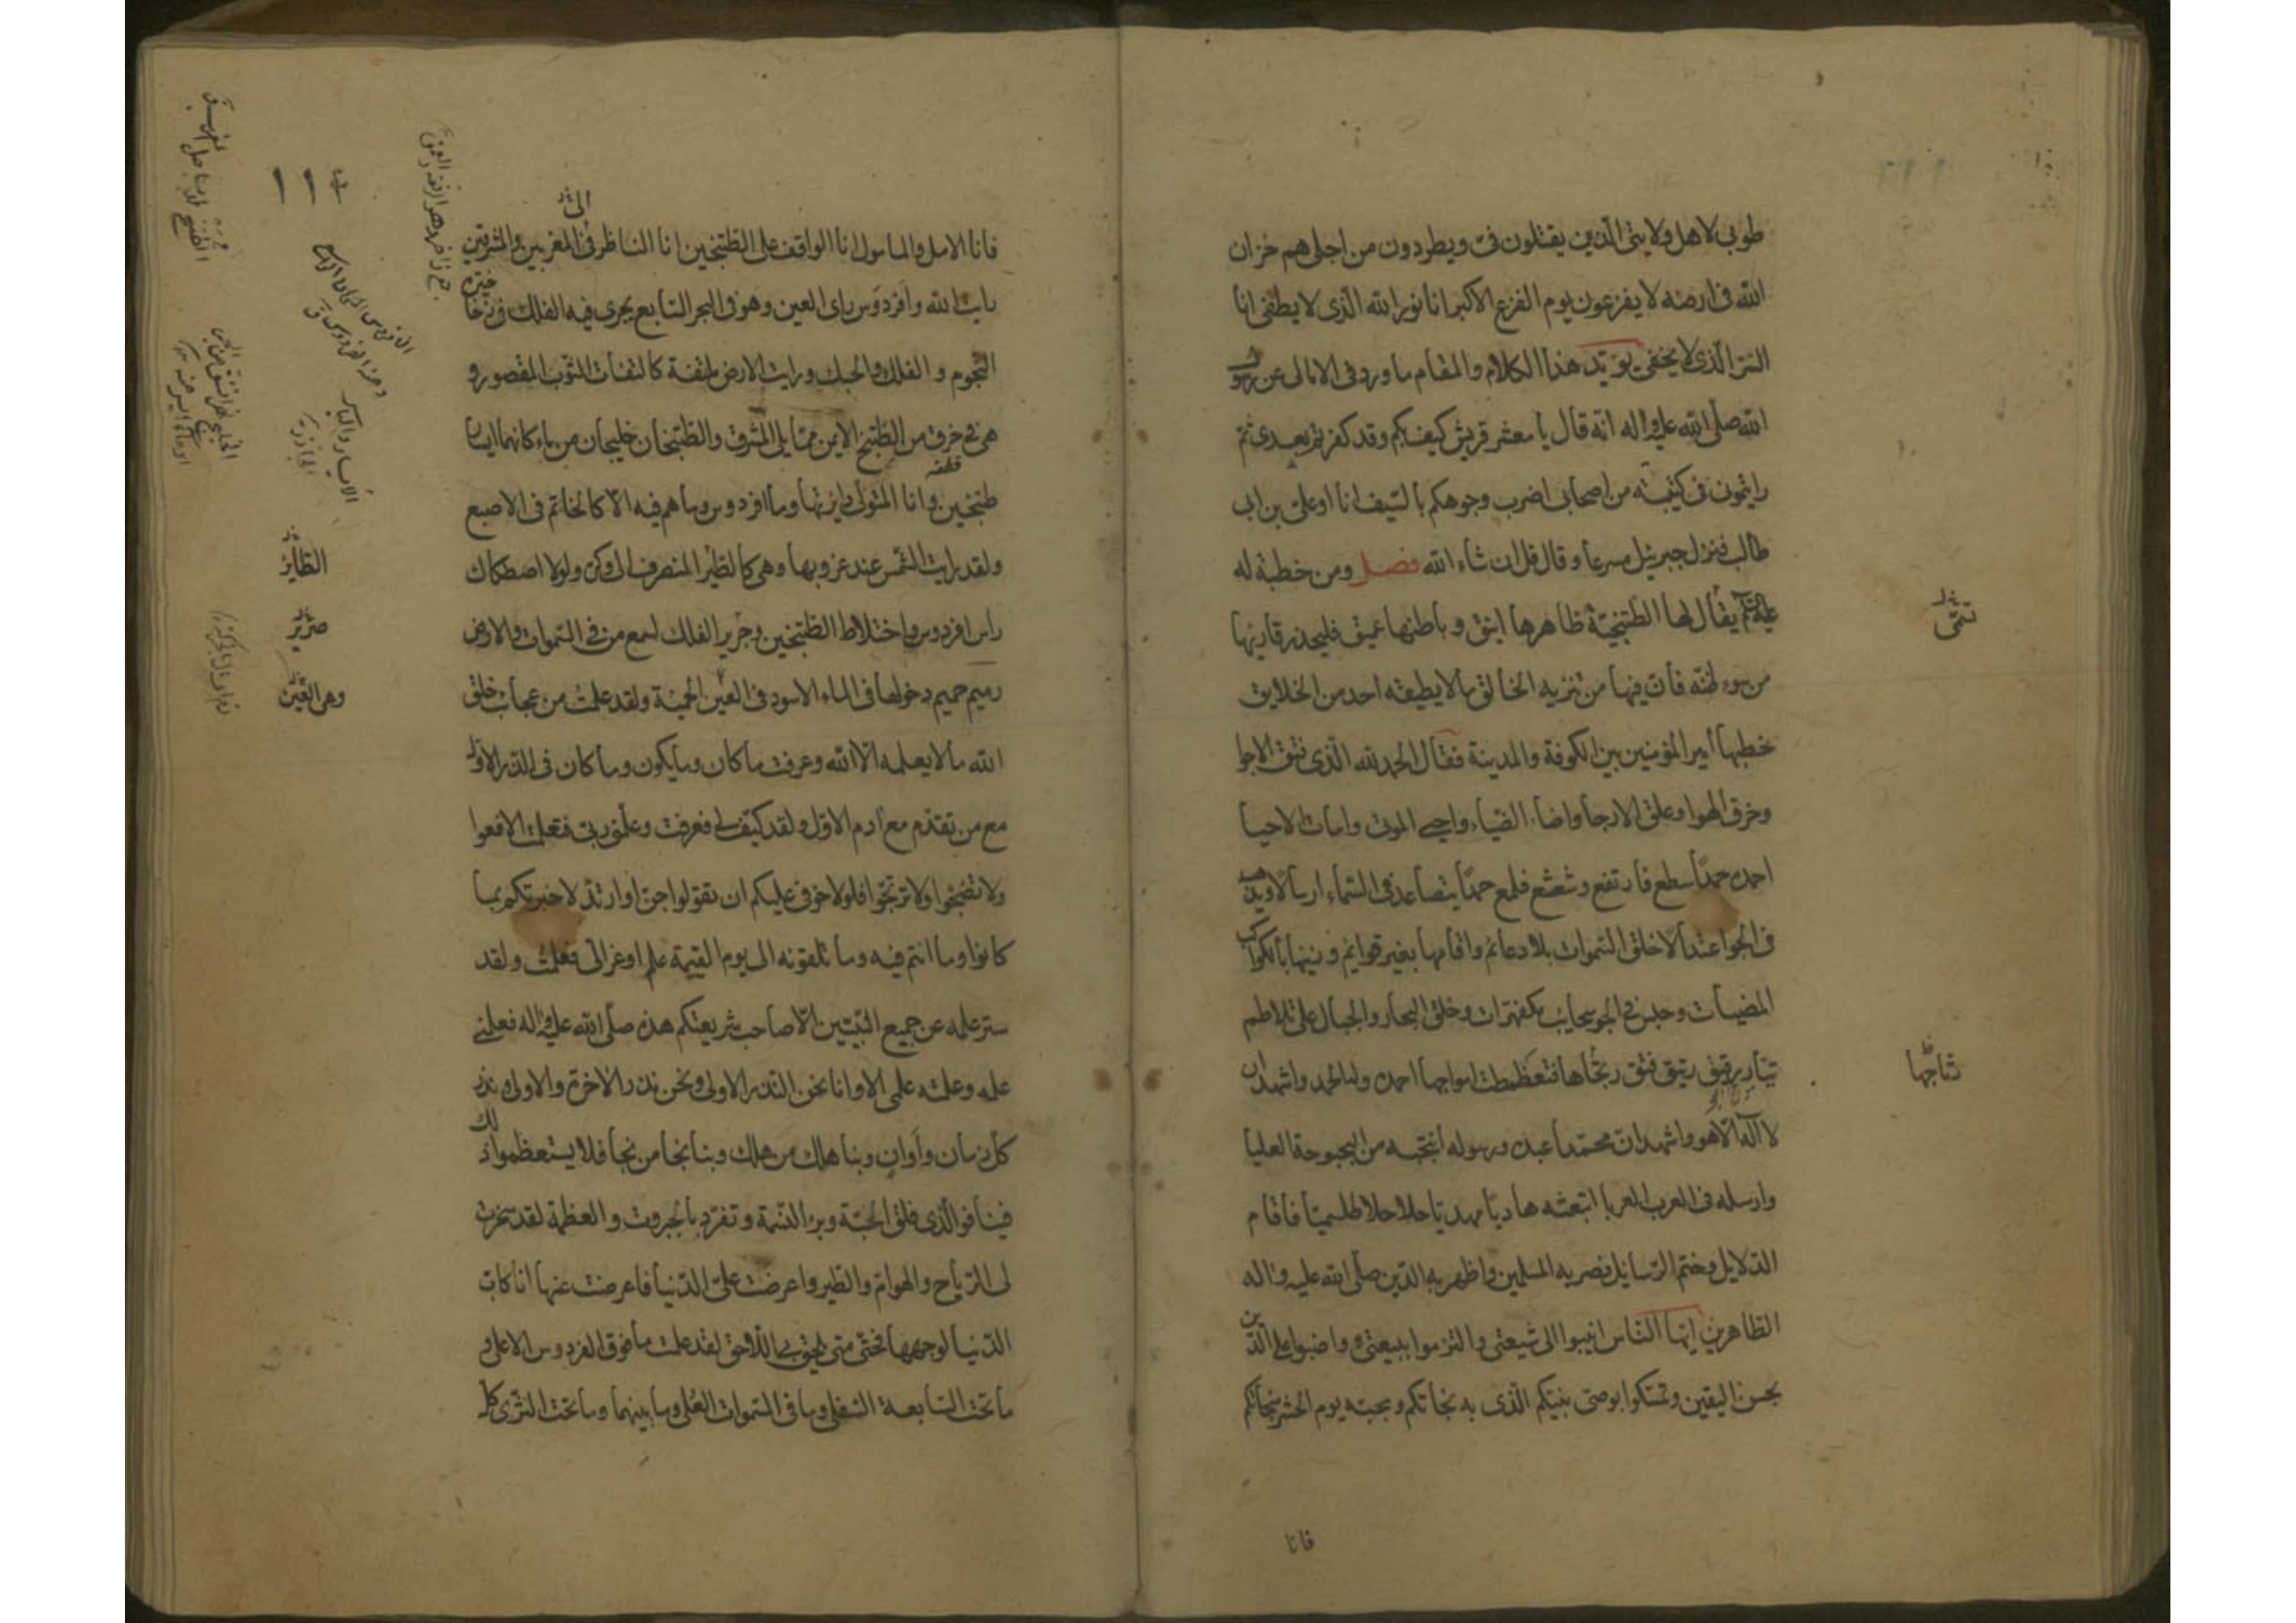 طوبى لاهل ولايتى الذين يقتلون فى ويطردون من اجلى هم خزان
الله فى ارضه لا يفزعون يوم الفزع الاكبر انا نور الله الذى لا يطفى انا
السر الذى لا يخفى يؤيد هذا الكلام والمقام ما ورد فى الامالى عن رسول
الله صلى الله عليه واله انه قال يا معشر قريش كيف بكم وقد كفرتم بعدى ثم
رايتمونى فى كتيبة من اصحابى اضرب وجوهكم بالسيف انا او على بن ابى
طالب فنزل جبرئيل مسرعا و قال قل ان شاء الله فصل ومن خطبة له
عليه السلم يقال لها الطتنجية ظاهرها انيق و باطنها عميق فليحذر قاريها
من سوء ظنه فان فيها من تنزيه الخالق ما لا يطيقه احد من الخلايق
خطبها أمير المؤمنين بين الكوفة والمدينة فقال الحمد لله الذى فتق الاجوا
وخرق الهوا وعلق الارجا واضاء الضياء واحيى الموتى وامات الاحيا
احمده حمدا سطع فارتفع وشعشع فلمع حمدا يتصاعد فى السماء ارسالا ويذهب
فى الجوا عتدالا خلق السموات بلا دعائم واقامها بغير قوائم و زينها بالكواكب
المضيات وحبس فى الجو سحايب مكفهرات وخلق البحار والجبال على تلاطم
تيار رقيق رتيق فتق رتجاها فتغطمطت امواجها احمده وله الحمد واشهد ان
لا اله الا هو واشهد ان محمدا عبده ورسوله انتجبه من البحبوحة العليا
وارسله فى العرب العربا ابتعثه هاديا مهديا حلاحلا طلسميا فاقام
الدلايل وختم الرسايل نصر به المسلمين واظهر به الدين صلى الله عليه واله
الطاهرين ايها الناس انيبوا الى شيعتى والتزموا ببيعتى و واضبوا على الدين
بحسن اليقين وتمسكوا بوصى نبيكم الذى به نجاتكم وبحبه يوم الحشر منجاتكم
فانا
تسمى
رتاجها
١١
الى
فانا الامل والمامول انا الواقف على الطتنجين انا الناظر فى المغربين والمشرقين
رايت الله وافردوس راى العين وهو فى البحر السابع يجرى فيه الفلك فى زخا خيره
النجوم و الفلك والحبك ورايت الارض ملتفة كالتفات الثوب المقصور و
هى فى خرق من الطتنج الايمن مما يلى المشرق والطتنجان خليجان من ماء كانهما ايسار
طتنجين وانا المتولى دايرتها وما افردوس وما هم فيه الا كالخاتم فى الاصبع
ولقد رايت الشمس عند غروبها وهى كالطير المنصرف الى وكره ولولا اصطكاك
راس افردوس واختلاط الطتنجين وجرير الفلك لسمع من فى السموات والارض
رميم حميم دخولها فى الماء الاسود فى العين الحمئة ولقد علمت من عجائب خلق
الله ما لا يعلمه الا الله وعرفت ما كان وما يكون وما كان فى الذر الاول
مع من تقدم مع ادم الاول ولقد كيف لى فعرفت وعلمنى ربى فتعلمت الا فعوا
ولا تضجوا ولا ترتجوا فلولا خوفى عليكم ان تقولوا جن او ارتد لاخبرتكم بما
كانوا وما انتم فيه وما تلقونه الى يوم القيمة علم اوعز الى فعلمت ولقد
ستر علمه عن جميع النبيين الا صاحب شريعتكم هذه صلى الله عليه واله فعلمنى
علمه وعلمته علمى الا وانا نحن النذر الاولى ونحن نذر الاخرة والاولى ونذر
كل زمان وأوان وبنا هلك من هلك وبنا نجا من نجا فلا يستعظموا ذلك
فينا فو الذى فلق الحبة وبرء النسمة و تفرد بالجبروت والعظمة لقد سخرت
لى الرياح والهوام والطير واعرضت على الدنيا فاعرضت عنها انا كاب
الدنيا لوجهها فحتى متى يلحق بى اللاحق لقد علمت ما فوق الفردوس الاعلى و
ما تحت السابعة السفلى وما فى السموات العلى وما بينهما وما تحت الثرى كل
الطاير
صرير
وهى العين